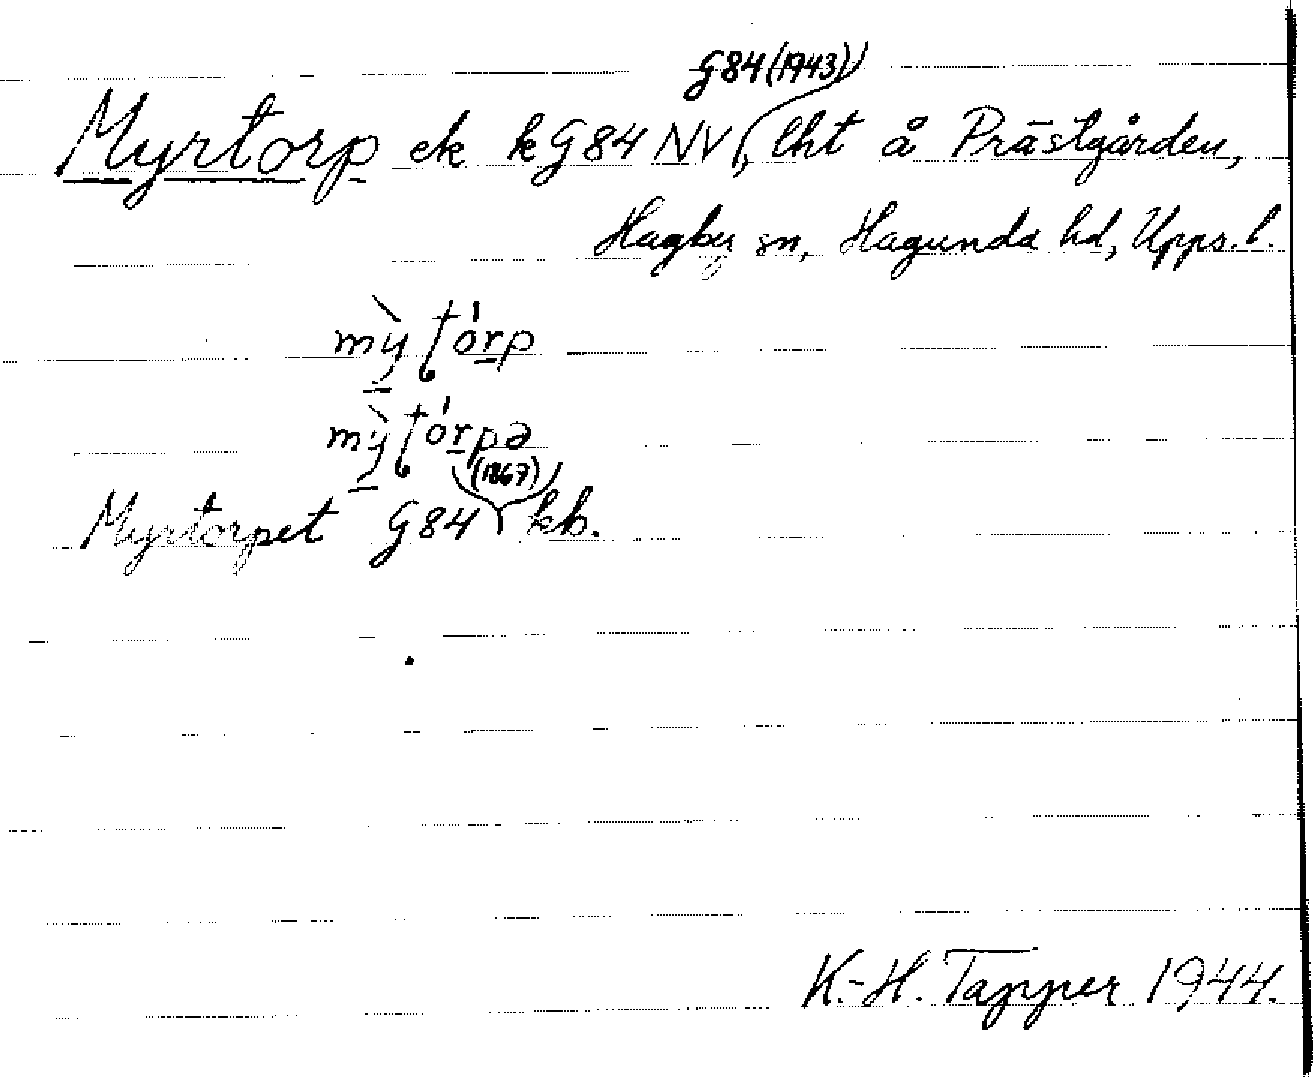 G84 (1943)
Myrtorp ek k G84 NV, lht å Prästgården,
Hagby sn, Hagunda hd, Upps. l.
mỳʈórp
mỳʈórpə
(1867)
Myrtorpet G84 kb.
K.-H. Tapper 1944.